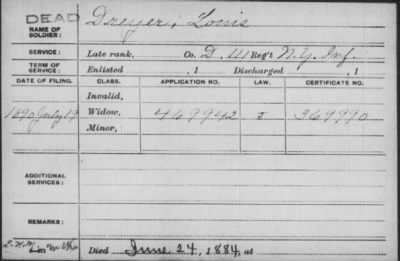 DEAD
NAME OF SOLDIER: Dreyer, Louis
SERVICE: Late rank, Co. D, 41 Reg't N.Y. Inf.
TERM OF SERVICE: Enlisted , 1 Discharged , 1
DATE OF FILING. CLASS. APPLICATION NO. LAW. CERTIFICATE NO.
Invalid,
1890 July 19 Widow, 469942 369990
Minor,
ADDITIONAL SERVICES:
REMARKS:
Died June 24, 1884, at